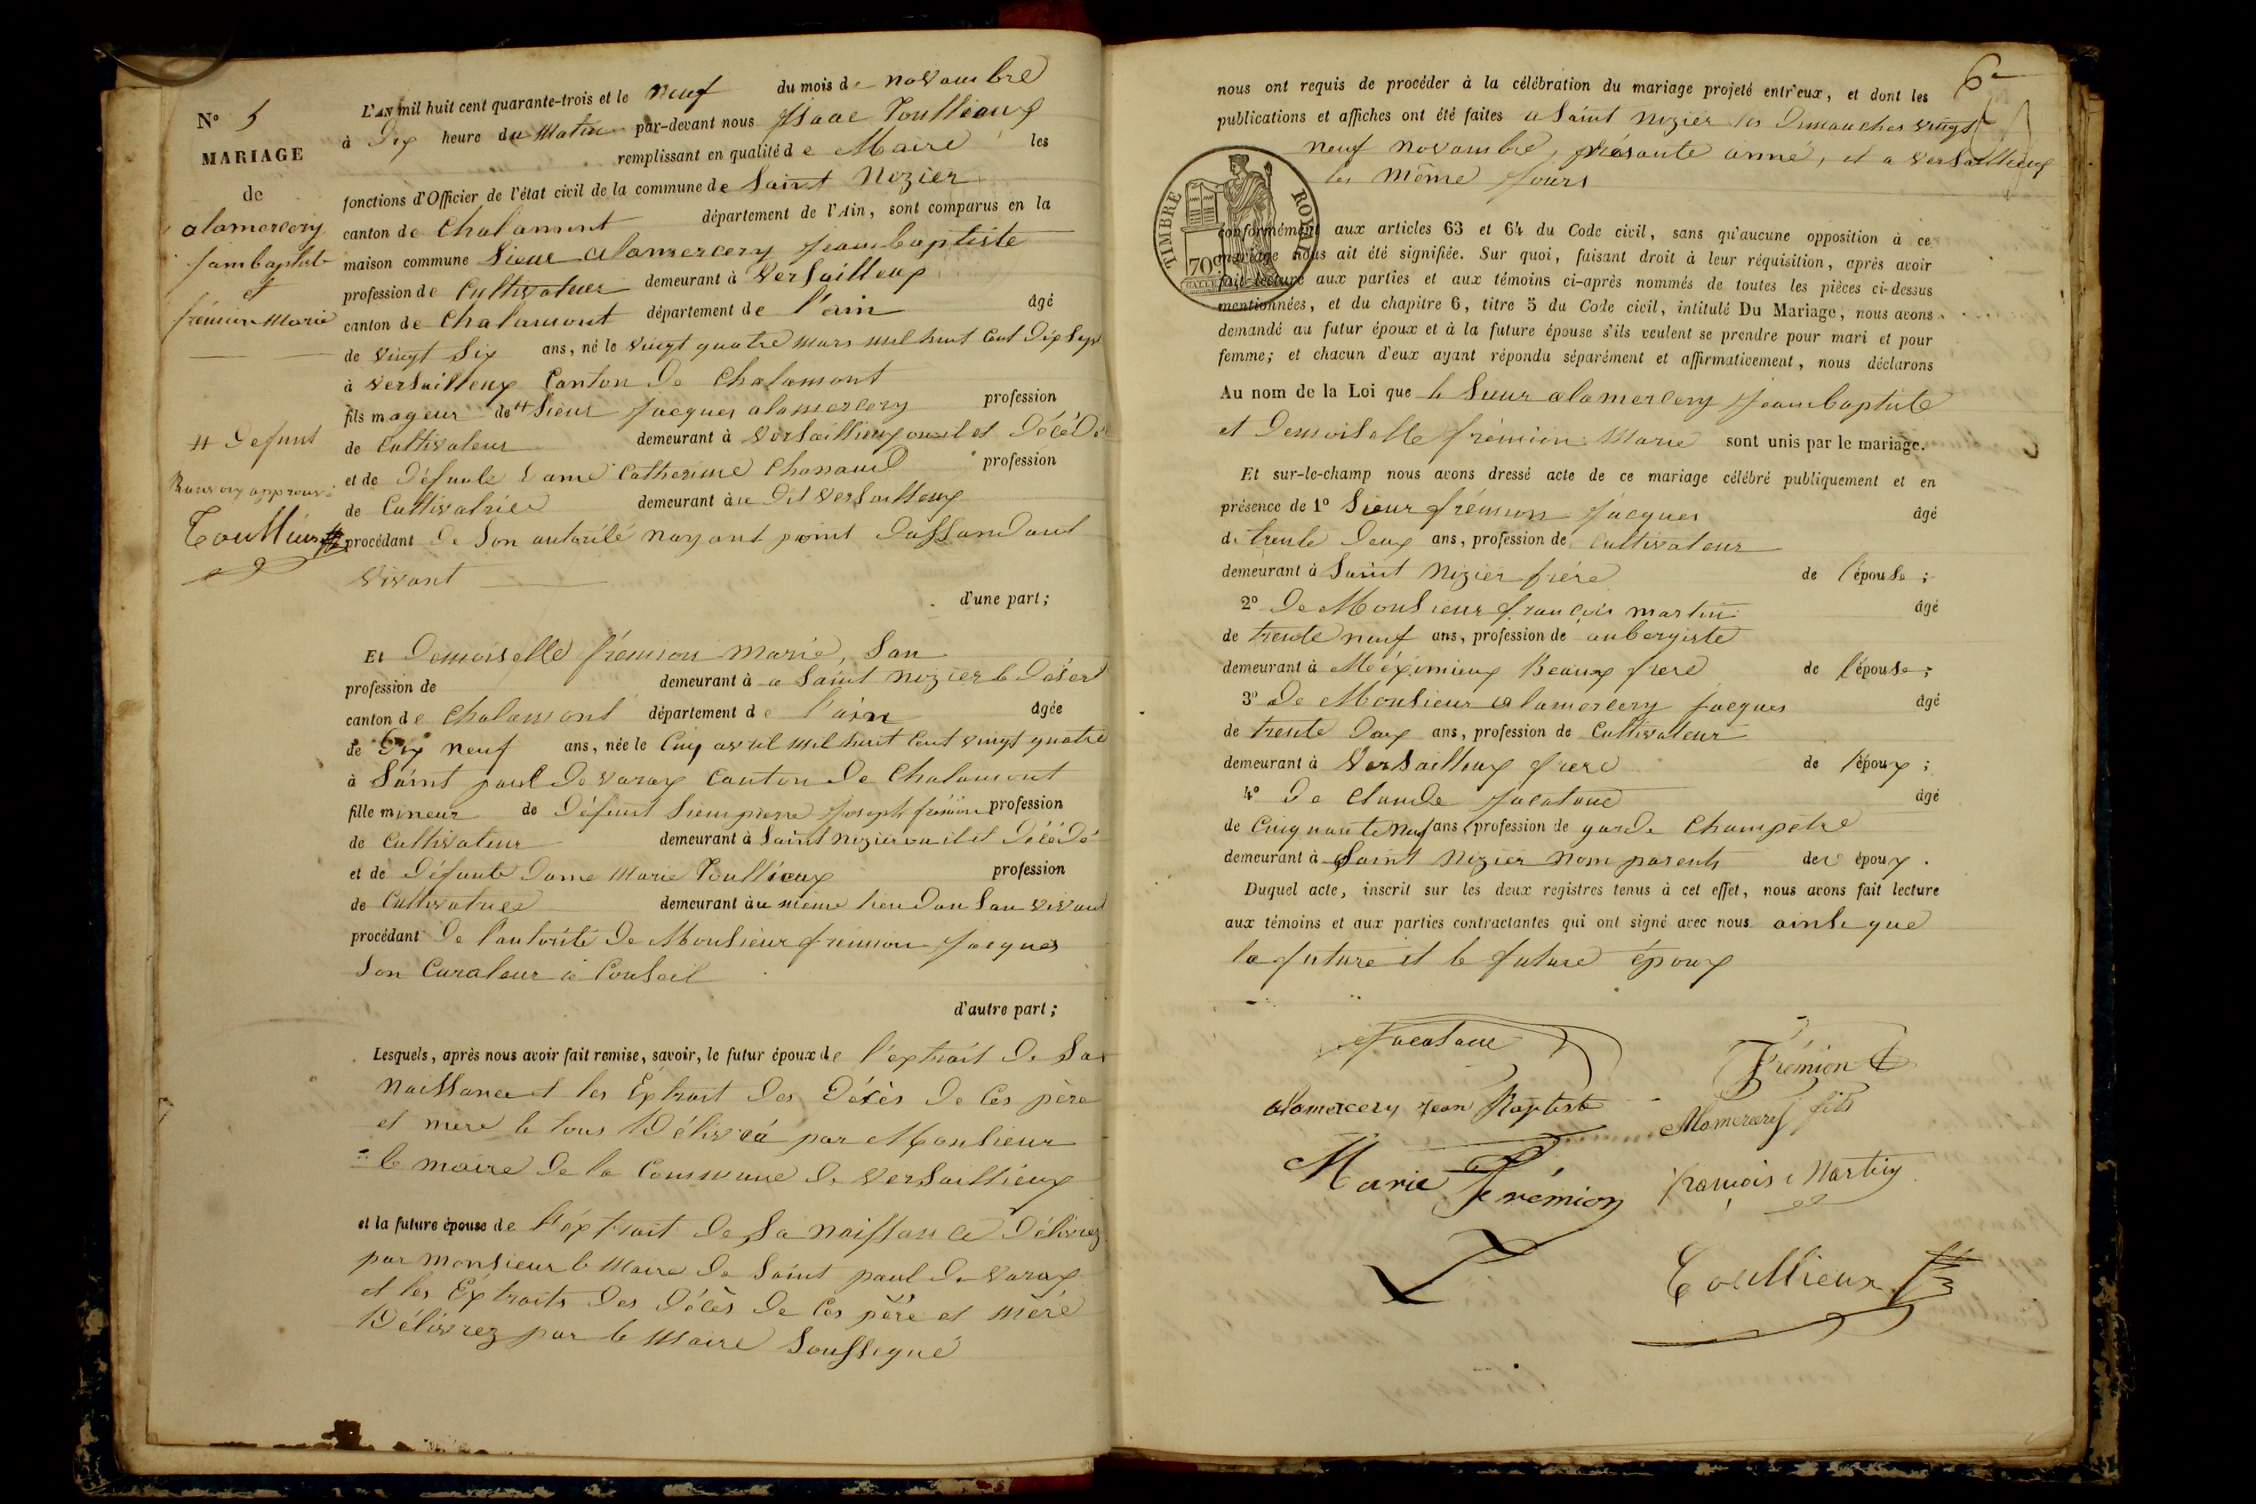 N° 5
MARIAGE
de
alamercery
jeanbaptiste
et
frémion Marie
H Defunt
Ranvoy approuvé
Toullieux
L'AN mil huit cent quarante-trois et le neuf du mois de novambre
à Dix heure du Matin par-devant nous Isaac Toullieux
remplissant en qualité de Maire les
fonctions d'Officier de l'état civil de la commune de Saint Nizier
canton de Chalamont département de l'Ain, sont comparus en la
maison commune Sieur alamercery jeanbaptiste
profession de Cultivateur demeurant à Versailleux
canton de Chalamont département de l'ain âgé
de vingt Six ans, né le vingt quatre mars mil huit Cent Dix Sept
à Versailleux Canton de Chalamont
fils mageur de H Sieur Jacques alamercery profession
de Cultivateur demeurant à Versaillieux ou il et Décédé
et de Défunte Dame Catherine Chanaud profession
de Cultivatrice demeurant à u Dit Versailleux
procédant de Son autorité nayant point Dassandant
vivant
d'une part;
Et Demoiselle frémion Marie, San
profession de demeurant à a Saint Nizier le Désert
canton de Chalamont département de l'ain âgée
de Dix neuf ans, née le Cinq avril mil huit Cent vingt quatre
à Saint paul de varax Canton de Chalamont
fille mineur de Défunt Sieur pierre Joseph frémion profession
de Cultivateur demeurant à Saint Nizier ou il et Décédé
et de Défunte Dame Marie Toullieux profession
de Cultivatrice demeurant à u même lieu Dan San vivant
procédant De l'autorité De Monsieur frémion Jacques
Son Curateur à Conseil
d'autre part;
Lesquels, après nous avoir fait remise, savoir, le futur époux de l'extrait De Sa
Naissance et les Extrait Des Décès De Ces père
et mere le tous Délivré par Monsieur
le maire De la Commune De Versaillieux
et la future épouse de l'éxtrait De Sa naissance Délivrez
par Monsieur le Maire De Saint paul De varax
et les Extraits Des Décès De Ces père et mère
Délivrez par le Maire Soussigné
6e
nous ont requis de procéder à la célébration du mariage projeté entr'eux, et dont les
publications et affiches ont été faites a Saint Nizier les Dimanches vingt
neuf novambre, présante anné, et a Versaillieux
les même Jours
TIMBRE ROYAL
70c
conformément aux articles 63 et 64 du Code civil, sans qu'aucune opposition à ce
mariage nous ait été signifiée. Sur quoi, faisant droit à leur réquisition, après avoir
fait lecture aux parties et aux témoins ci-après nommés de toutes les pièces ci-dessus
mentionnées, et du chapitre 6, titre 5 du Code civil, intitulé Du Mariage, nous avons
demandé au futur époux et à la future épouse s'ils veulent se prendre pour mari et pour
femme; et chacun d'eux ayant répondu séparément et affirmativement, nous déclarons
Au nom de la Loi que le Sieur alamercery Jeanbaptiste
et Demoiselle frémion Marie sont unis par le mariage.
Et sur-le-champ nous avons dressé acte de ce mariage célébré publiquement et en
présence de 1° Sieur frémion Jacques âgé
de trente Deux ans, profession de Cultivateur
demeurant à Saint Nizier frère de l'épouse;
2° De Monsieur françois martin âgé
de trente neuf ans, profession de aubergiste
demeurant à Méximieux Beaux frere de l'épouse;
3° De Monsieur alamercery Jacques âgé
de trente Deux ans, profession de Cultivateur
demeurant à Versailleux frere de l'époux;
4° De Claude Jacatane âgé
de Cinquante Neuf ans, profession de garde Champêtre
demeurant à Saint Nizier Nom parents des époux.
Duquel acte, inscrit sur les deux registres tenus à cet effet, nous avons fait lecture
aux témoins et aux parties contractantes qui ont signé avec nous ainsi que
la future et le future époux
Jacatane
Frémion
alamercery jean Baptiste
Alamercery fils
Marie Frémion
françois Martin
Toullieux